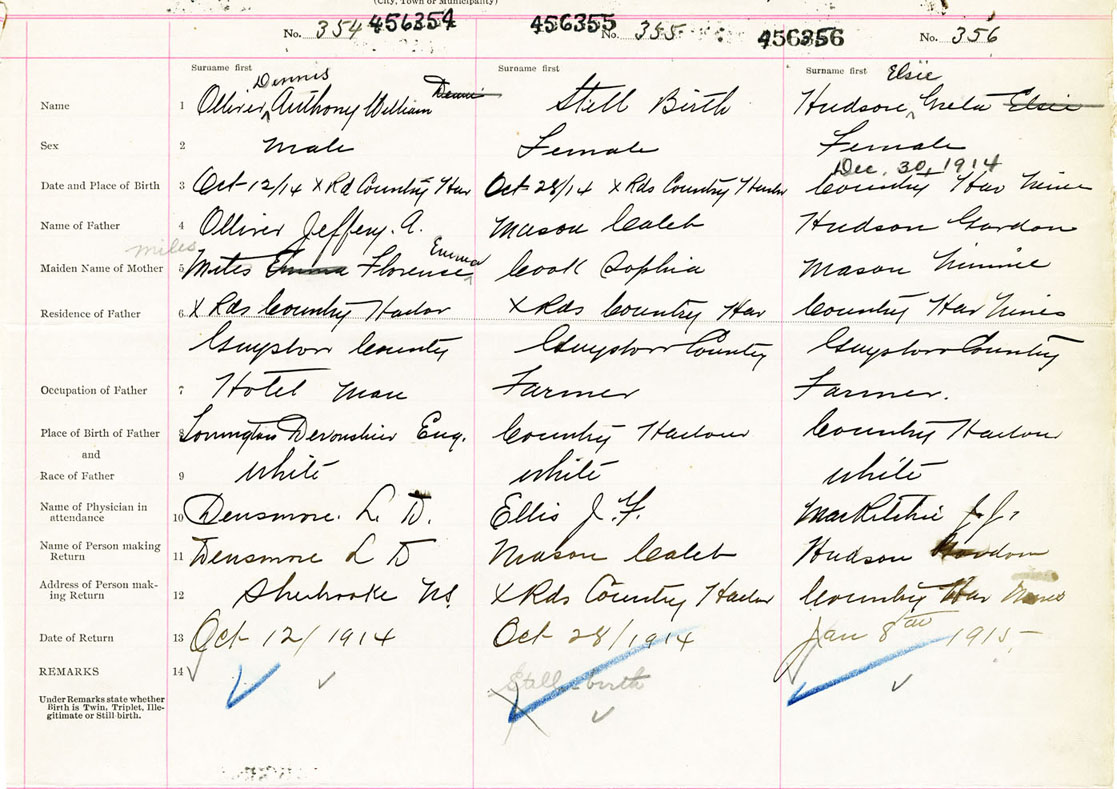 (City, Town or Municipality)
No. 354 456354 456355 No. 355 456356 No. 356
Surname first Dennis Surname first Surname first Elsie
Name 1 Olliver, Anthony William Dennis Still Birth Hudson Greta Elsie
Sex 2 Male Female Female
Dec. 30, 1914
Date and Place of Birth 3 Oct 12/14 X Rd Country Har Oct 28/14 X Rds Country Harbor Country Har Mines
Name of Father 4 Olliver Jeffery. A. Mason Caleb Hudson Gordon
miles Emma
Maiden Name of Mother 5 Miles Emma Florense Cook Sophia Mason Minnie
Residence of Father 6 X Rds Country Harbor X Rds Country Har Country Har Mines
Guysboro County Guysboro County Guysboro County
Occupation of Father 7 Hotel Man Farmer Farmer.
Place of Birth of Father 8 Devonshire Eng. Country Harbour Country Harbour
and
Race of Father 9 white white white
Name of Physician in
attendance 10 Densmore. L. D. Ellis J. F. MacRitchie J. J.
Name of Person making
Return 11 Densmore L D Mason Caleb Hudson Gordon
Address of Person mak-
ing Return 12 Sherbrooke NS. X Rds Country Harbor Country Har Mines
Date of Return 13 Oct 12/1914 Oct 28/1914 Jan 8th 1915
REMARKS 14 Still-birth
Under Remarks state whether
Birth is Twin, Triplet, Ille-
gitimate or Still birth.